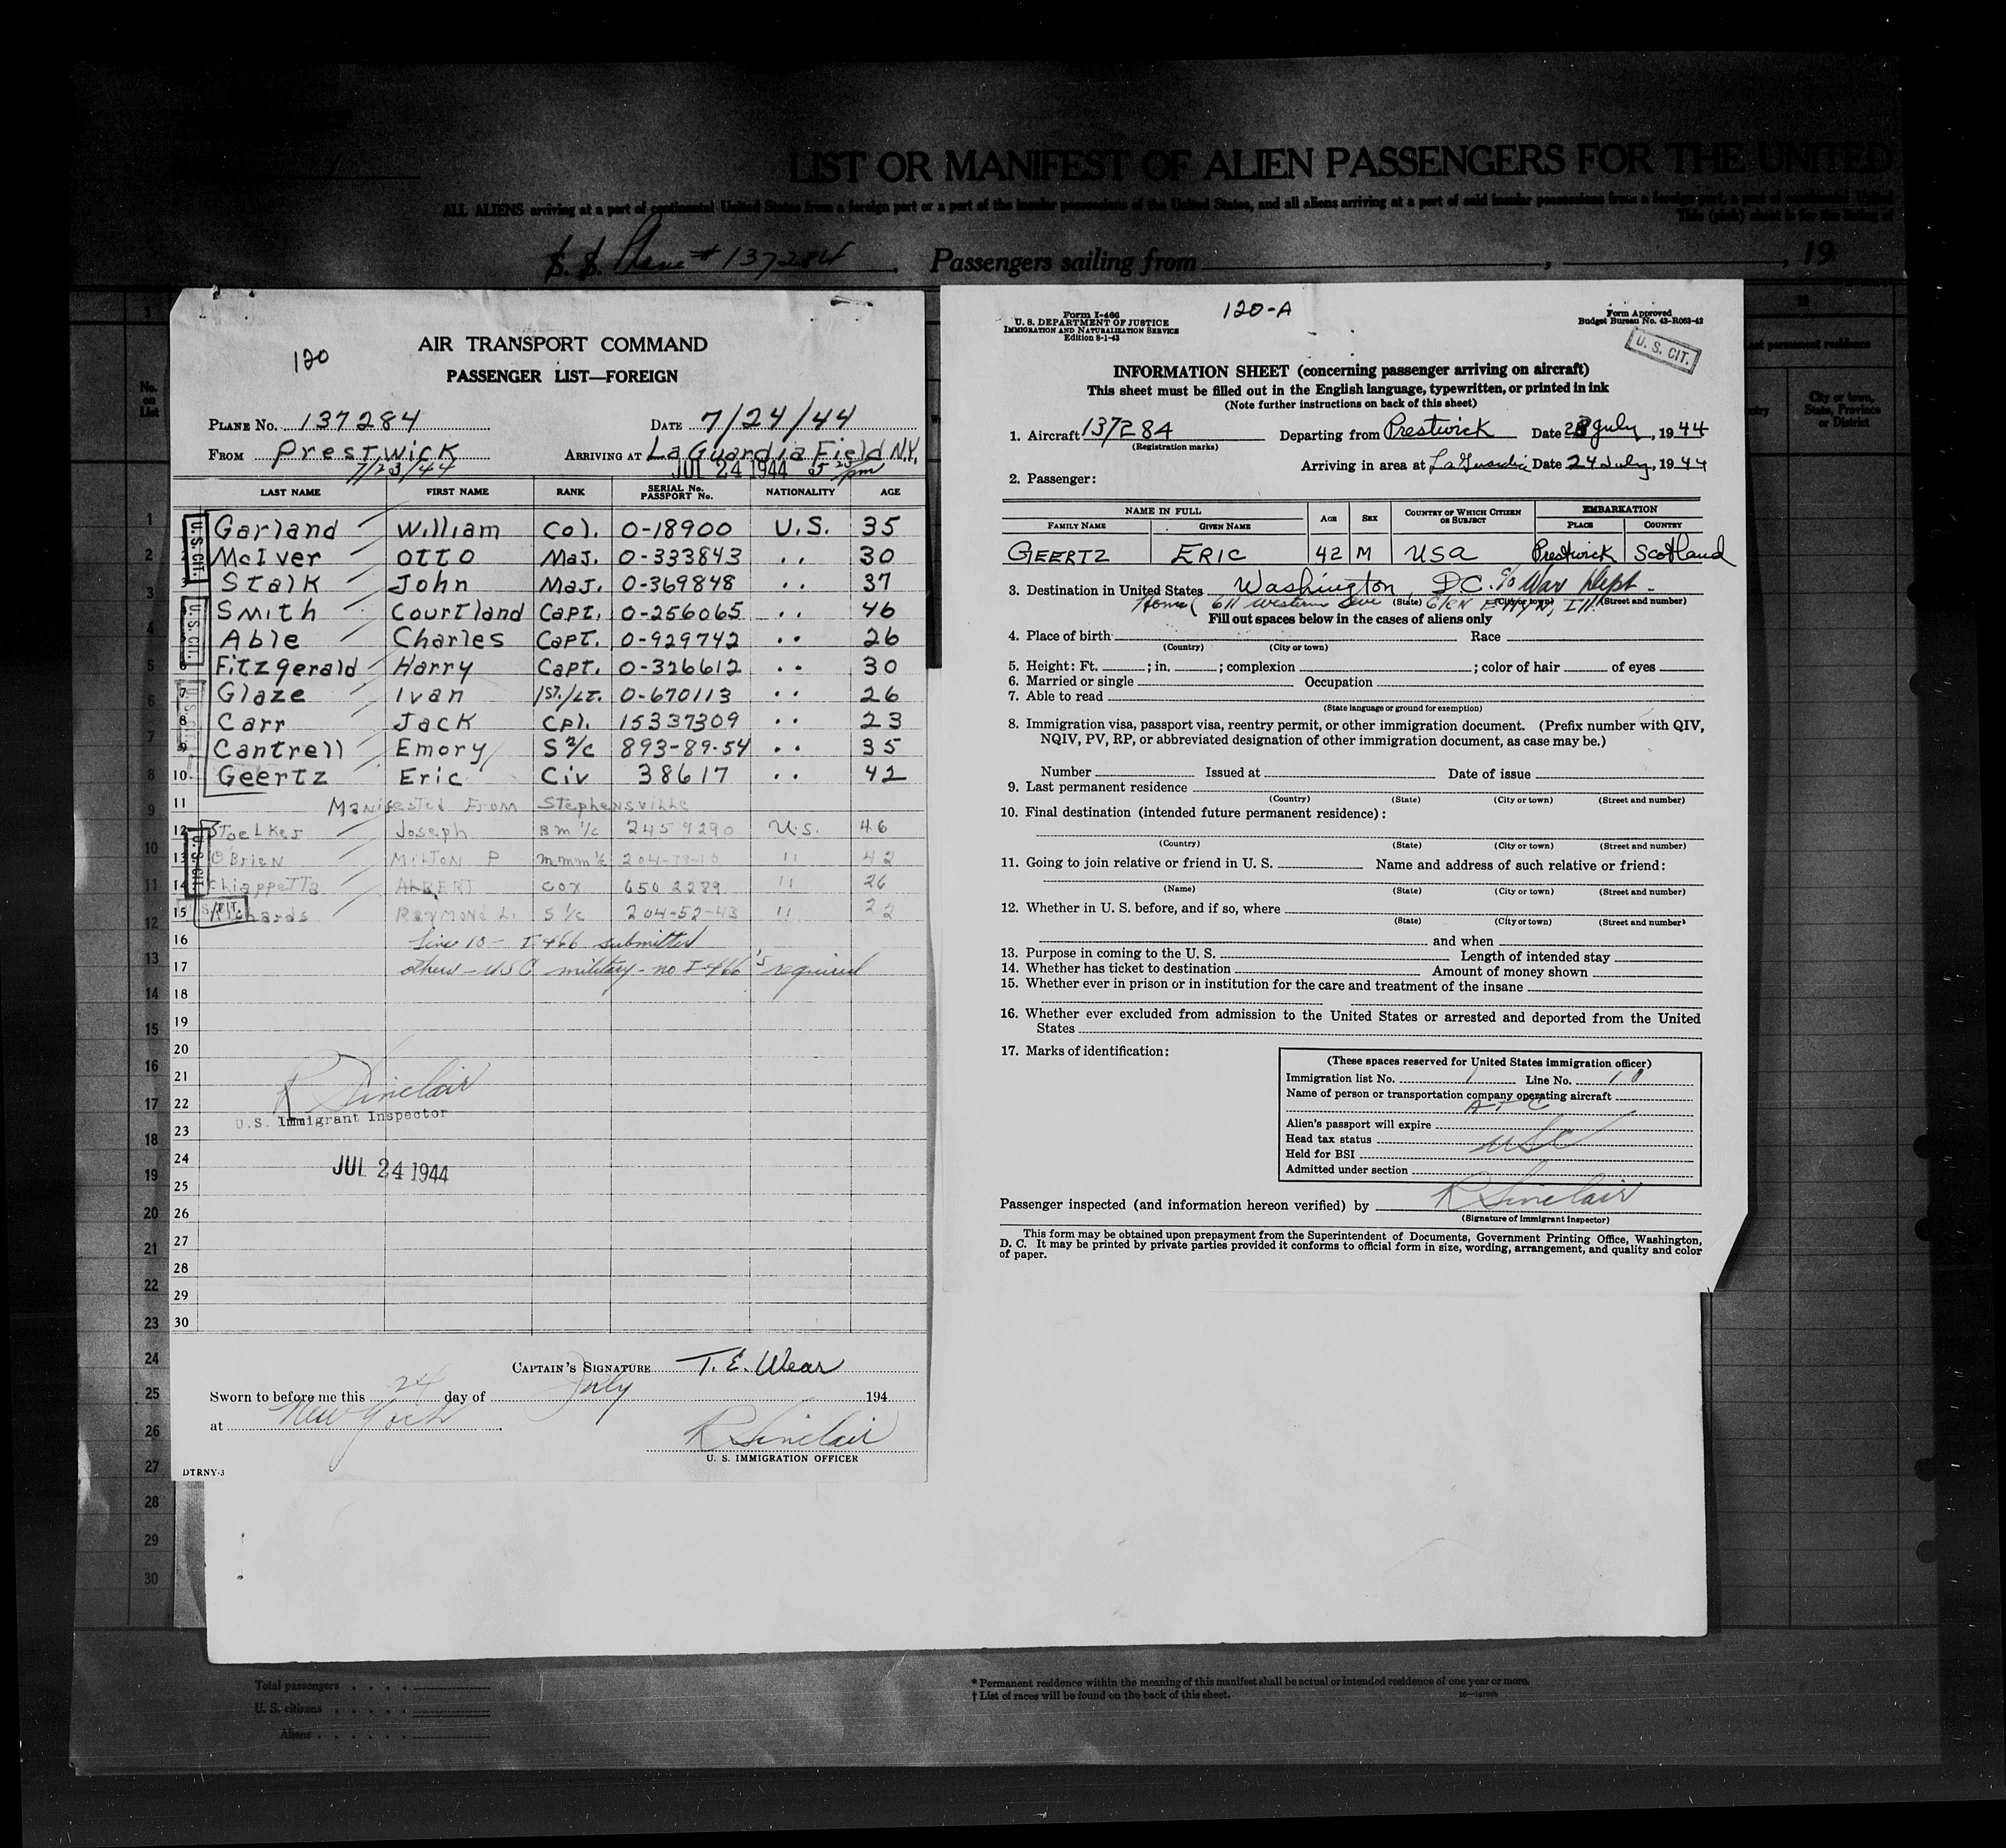 LIST OR MANIFEST OF ALIEN PASSENGERS FOR THE UNITED
ALL ALIENS arriving at a port of continental United States from a foreign port or a port of the insular possessions of the United States, and all aliens arriving at a port of said insular possessions from a foreign port, a port of continental United
This (pink) sheet is for the listing of
S. S. Plane # 137284 Passengers sailing from , , 19
No. on List
120
AIR TRANSPORT COMMAND
PASSENGER LIST—FOREIGN
PLANE NO. 137284 DATE 7/24/44
FROM Prestwick ARRIVING AT La Guardia Field N.Y.
7/23/44 JUL 24 1944 5 25 pm
LAST NAME FIRST NAME RANK SERIAL No. PASSPORT No. NATIONALITY AGE
Garland William Col. O-18900 U.S. 35
McIver Otto Maj. O-333843 .. 30
Stalk John Maj. O-369848 .. 37
Smith Courtland Capt. O-256065 .. 46
Able Charles Capt. O-929742 .. 26
Fitzgerald Harry Capt. O-326612 .. 30
7 Glaze Ivan 1st/Lt. O-670113 .. 26
8 Carr Jack Cpl. 15337309 .. 23
9 Cantrell Emory S 2/c 893-89-54 .. 35
10 Geertz Eric Civ 38617 .. 42
11 Manifested From Stephensville
12 Stoelker Joseph BM 1/c 245 9290 U.S. 46
13 O'Brien Milton P MMM 1/c 204-78-10 11 42
14 Chiappetta Albert Cox 650 2289 11 26
15 Richards Raymond L. S 1/c 204-52-43 11 22
U.S. CIT.
U.S. CIT.
U.S. CIT.
U.S. CIT.
U.S. CIT.
16 Line 10 - I 466 submitted
17 others - USC military - no I-466's required
18
19
20
21
22
23
24
25
26
27
28
29
30
R Sinclair
U.S. Immigrant Inspector
JUL 24 1944
CAPTAIN'S SIGNATURE T. E. Wear
Sworn to before me this 24 day of July 194
at New York
R Sinclair
U. S. IMMIGRATION OFFICER
DTRNY-3
Form I-466
U. S. DEPARTMENT OF JUSTICE
IMMIGRATION AND NATURALIZATION SERVICE
Edition 8-1-43
120-A
Form Approved
Budget Bureau No. 43-R063-42
U. S. CIT.
INFORMATION SHEET (concerning passenger arriving on aircraft)
This sheet must be filled out in the English language, typewritten, or printed in ink
(Note further instructions on back of this sheet)
1. Aircraft 137284 Departing from Prestwick Date 23 July, 1944
(Registration marks)
Arriving in area at La Guardia Date 24 July, 1944
2. Passenger:
NAME IN FULL AGE SEX COUNTRY OF WHICH CITIZEN OR SUBJECT EMBARKATION
FAMILY NAME GIVEN NAME PLACE COUNTRY
GEERTZ ERIC 42 M USA Prestwick Scotland
3. Destination in United States Washington, D.C. c/o War Dept.
(State) (City or town) (Street and number)
Home (611 Western Ave Glen Ellyn, Ill.
Fill out spaces below in the cases of aliens only
4. Place of birth Race
(Country) (City or town)
5. Height: Ft. ; in. ; complexion ; color of hair of eyes
6. Married or single Occupation
7. Able to read
(State language or ground for exemption)
8. Immigration visa, passport visa, reentry permit, or other immigration document. (Prefix number with QIV,
NQIV, PV, RP, or abbreviated designation of other immigration document, as case may be.)
Number Issued at Date of issue
9. Last permanent residence
(Country) (State) (City or town) (Street and number)
10. Final destination (intended future permanent residence):
(Country) (State) (City or town) (Street and number)
11. Going to join relative or friend in U. S. Name and address of such relative or friend:
(Name) (State) (City or town) (Street and number)
12. Whether in U. S. before, and if so, where
(State) (City or town) (Street and number)
and when
13. Purpose in coming to the U. S. Length of intended stay
14. Whether has ticket to destination Amount of money shown
15. Whether ever in prison or in institution for the care and treatment of the insane
16. Whether ever excluded from admission to the United States or arrested and deported from the United
States
17. Marks of identification:
(These spaces reserved for United States immigration officer)
Immigration list No. 1 Line No. 10
Name of person or transportation company operating aircraft
ATC
Alien's passport will expire
Head tax status USC
Held for BSI
Admitted under section
Passenger inspected (and information hereon verified) by R Sinclair
(Signature of immigrant inspector)
This form may be obtained upon prepayment from the Superintendent of Documents, Government Printing Office, Washington,
D. C. It may be printed by private parties provided it conforms to official form in size, wording, arrangement, and quality and color
of paper.
permanent residence
City or town, State, Province or District
Total passengers
U. S. citizens
Aliens
* Permanent residence within the meaning of this manifest shall be actual or intended residence of one year or more.
† List of races will be found on the back of this sheet.